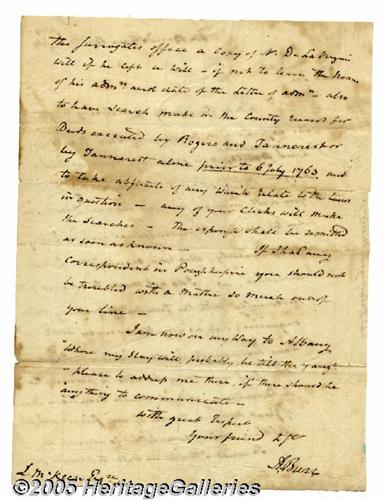 the Surrogates office a Copy of N. De La
will if he left a will - if not to learn the Name
of his admrs and date of the letter of admn - also
to have Search made in the County Records for
Deeds executed by Rogers and Tannerest or
by Tannerest alone prior to 6 July 1763, and
to take abstracts of any which relate to the lands
in question - any of your Clerks will make
the Searches - The expense shall be remitted
as soon as known - If I had any
Correspondent in Poughkeepsie you should not
be troubled with a Matter so much out of
your line -
I am now on my Way to Albany
Where my Stay will probably be till the
- please to address me there, if there should be
anything to communicate -
With great Respect
Your friend &
A. Burr
Esqr
©2005 HeritageGalleries